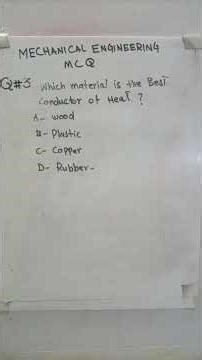 MECHANICAL ENGINEERING
MCQ
Q#3 Which material is the Best
Conductor of Heat ?
A- Wood
B- Plastic
C- Copper
D- Rubber-